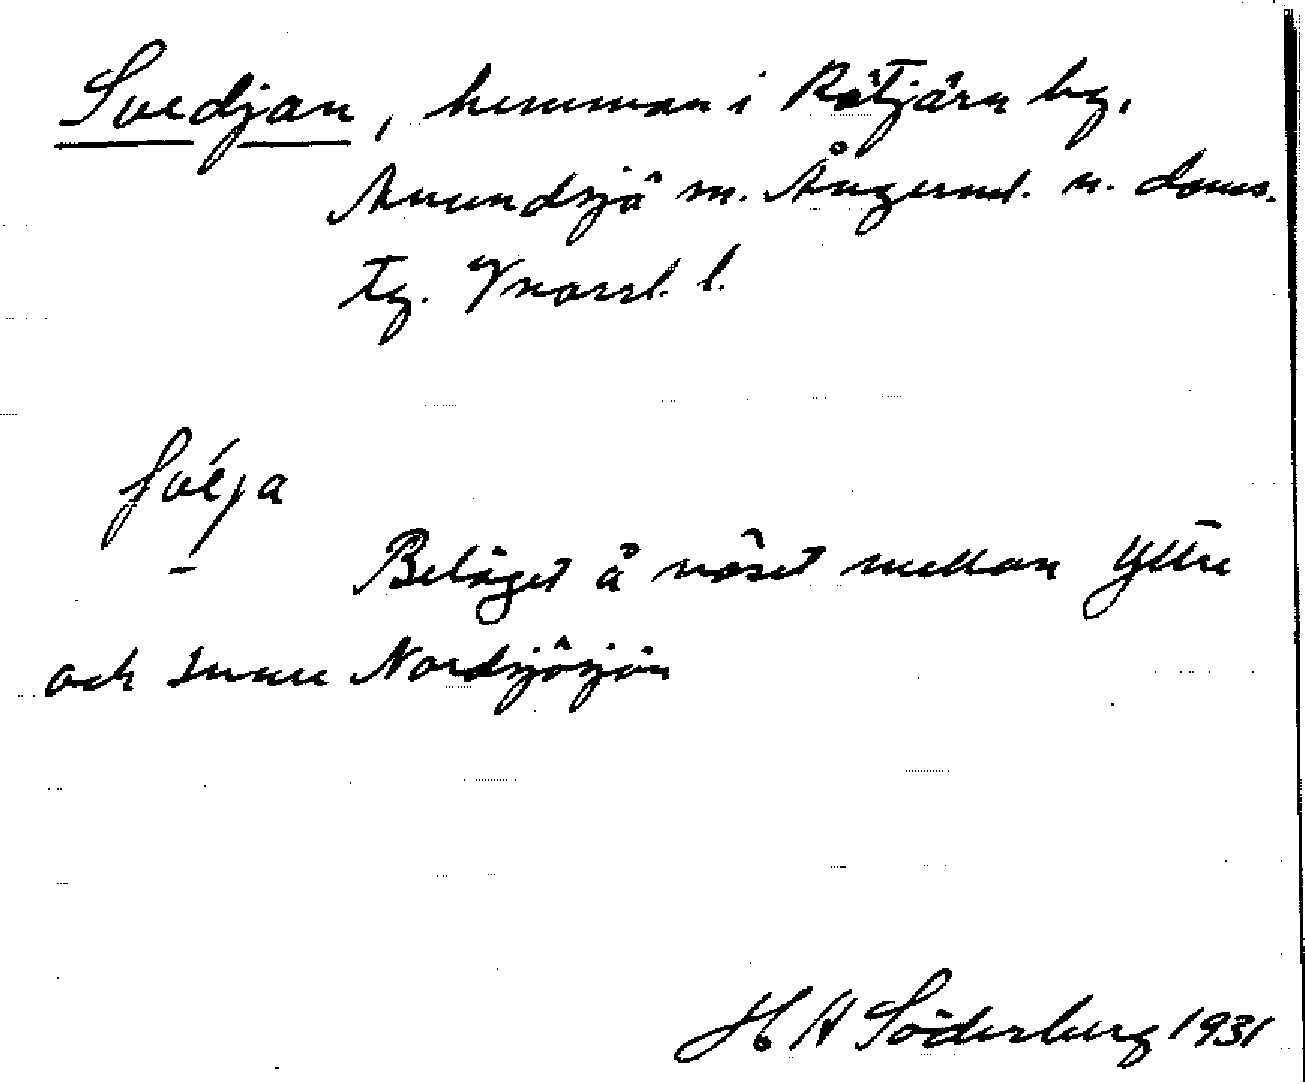 Svedjan, hemman i Råtjärn by,
Anundsjö sn. Ångerml. n. doms.
tg. Vnorrl. l.
svéja
Beläget å näset mellan Yttre
och Inre Nordsjösjön
H A Söderberg 1931